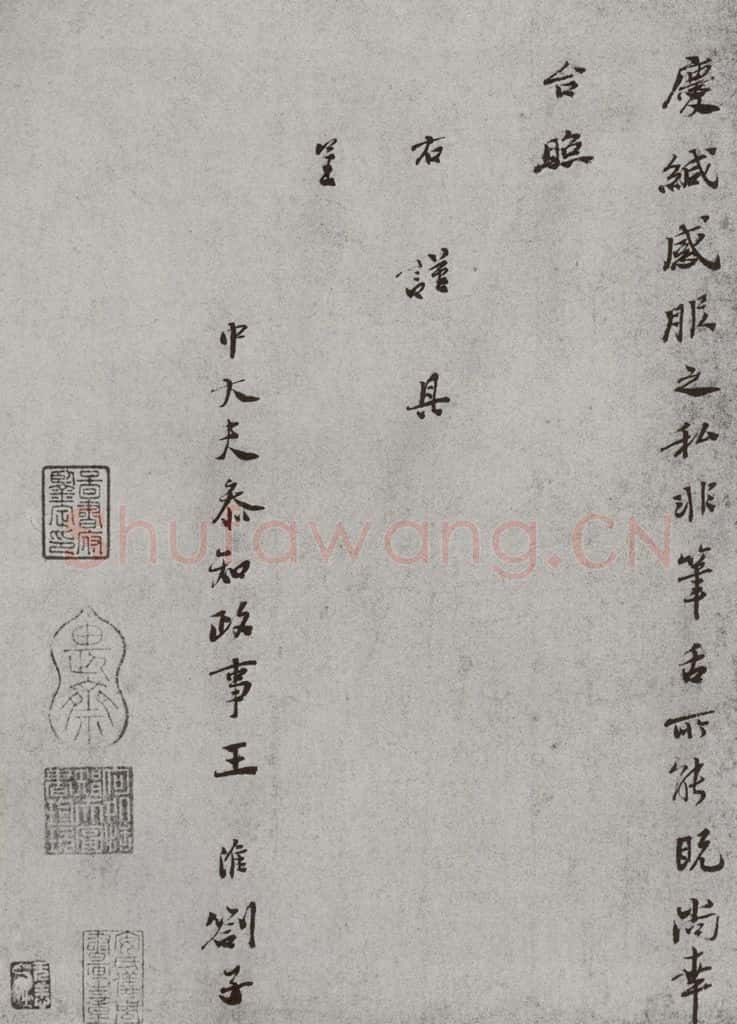 慶緘感服之私非筆舌所能既尚幸
台照
右謹具
呈
中大夫叅知政事王淮劄子
shufawang.CN